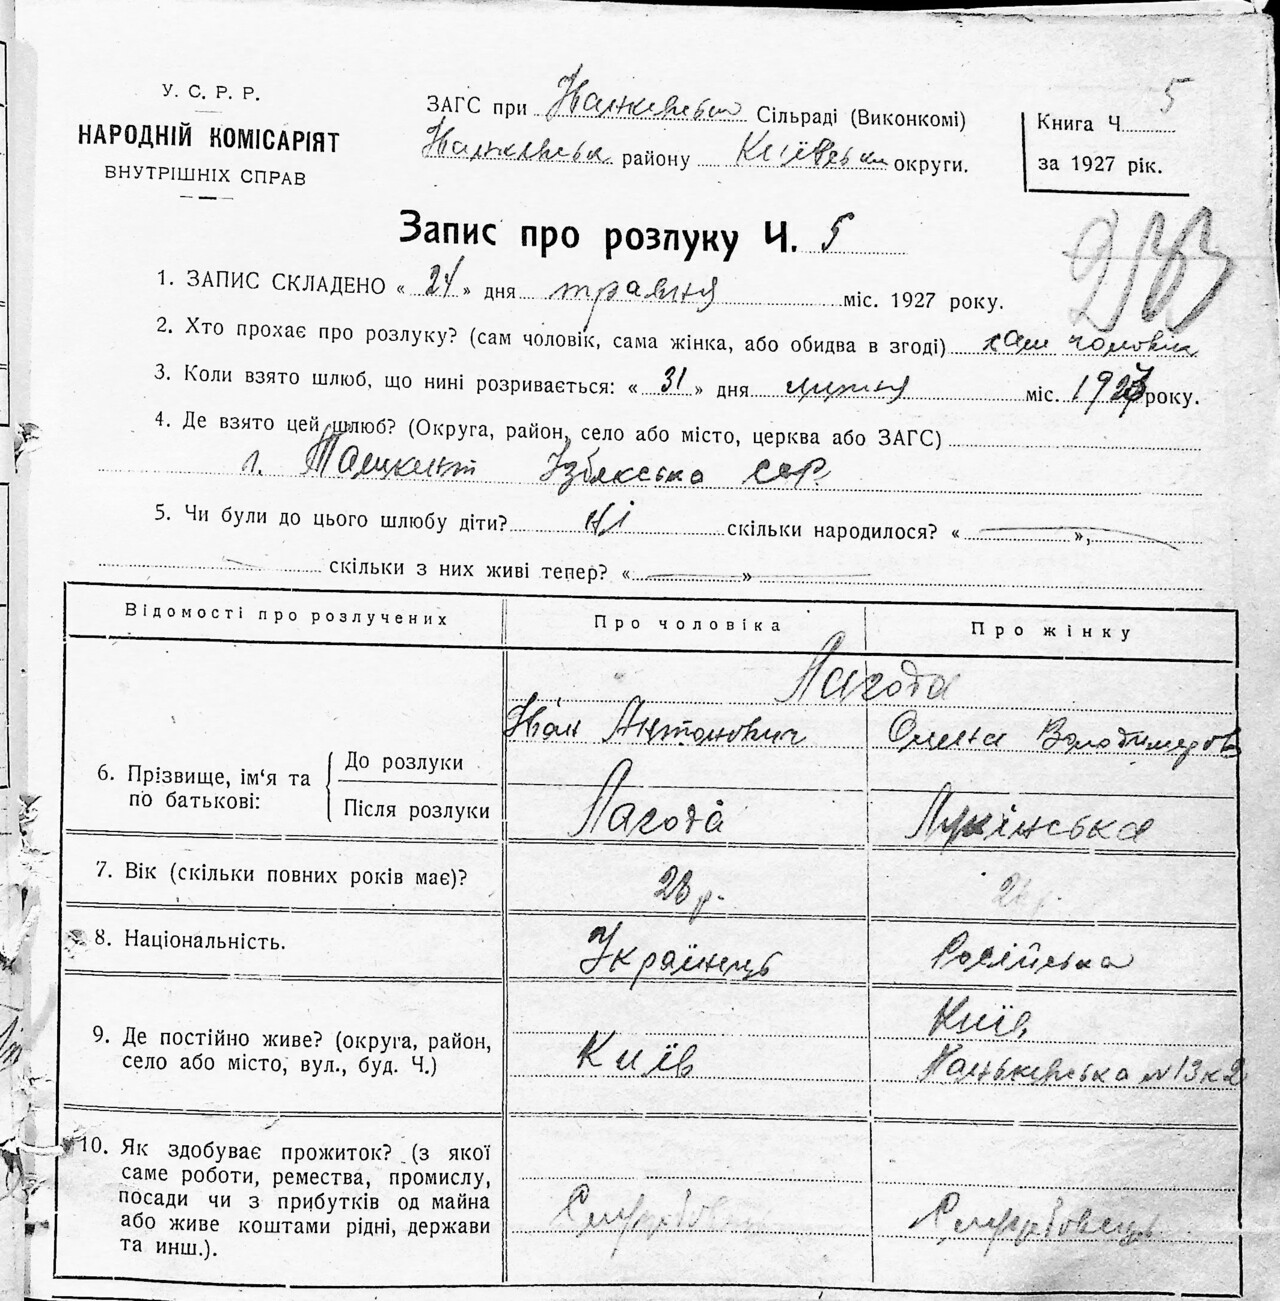 5
У. С. Р. Р.
НАРОДНІЙ КОМІСАРІЯТ
ВНУТРІШНІХ СПРАВ
ЗАГС при Сільраді (Виконкомі)
району Київська округи.
Книга Ч
за 1927 рік.
Запис про розлуку Ч. 5
1. ЗАПИС СКЛАДЕНО « 24 » дня травня міс. 1927 року.
2. Хто прохає про розлуку? (сам чоловік, сама жінка, або обидва в згоді) сам чоловік
3. Коли взято шлюб, що нині розривається: « 31 » дня міс. 192 року.
4. Де взято цей шлюб? (Округа, район, село або місто, церква або ЗАГС)
г. Ташкент Узбекська ССР.
5. Чи були до цього шлюбу діти? Ні скільки народилося? « — »,
скільки з них живі тепер? « — »
Відомості про розлучених
Про чоловіка
Про жінку
6. Прізвище, ім'я та по батькові:
До розлуки
Після розлуки
Лагода
Іван Антонович
Олена Володимеров
Лагода
Лукінська
7. Вік (скільки повних років має)?
8. Національність.
Українець
Російська
9. Де постійно живе? (округа, район,
село або місто, вул., буд. Ч.)
Київ
Київ
Паньківська № 13 к 2
10. Як здобуває прожиток? (з якої
саме роботи, ремества, промислу,
посади чи з прибутків од майна
або живе коштами рідні, держави
та инш.).